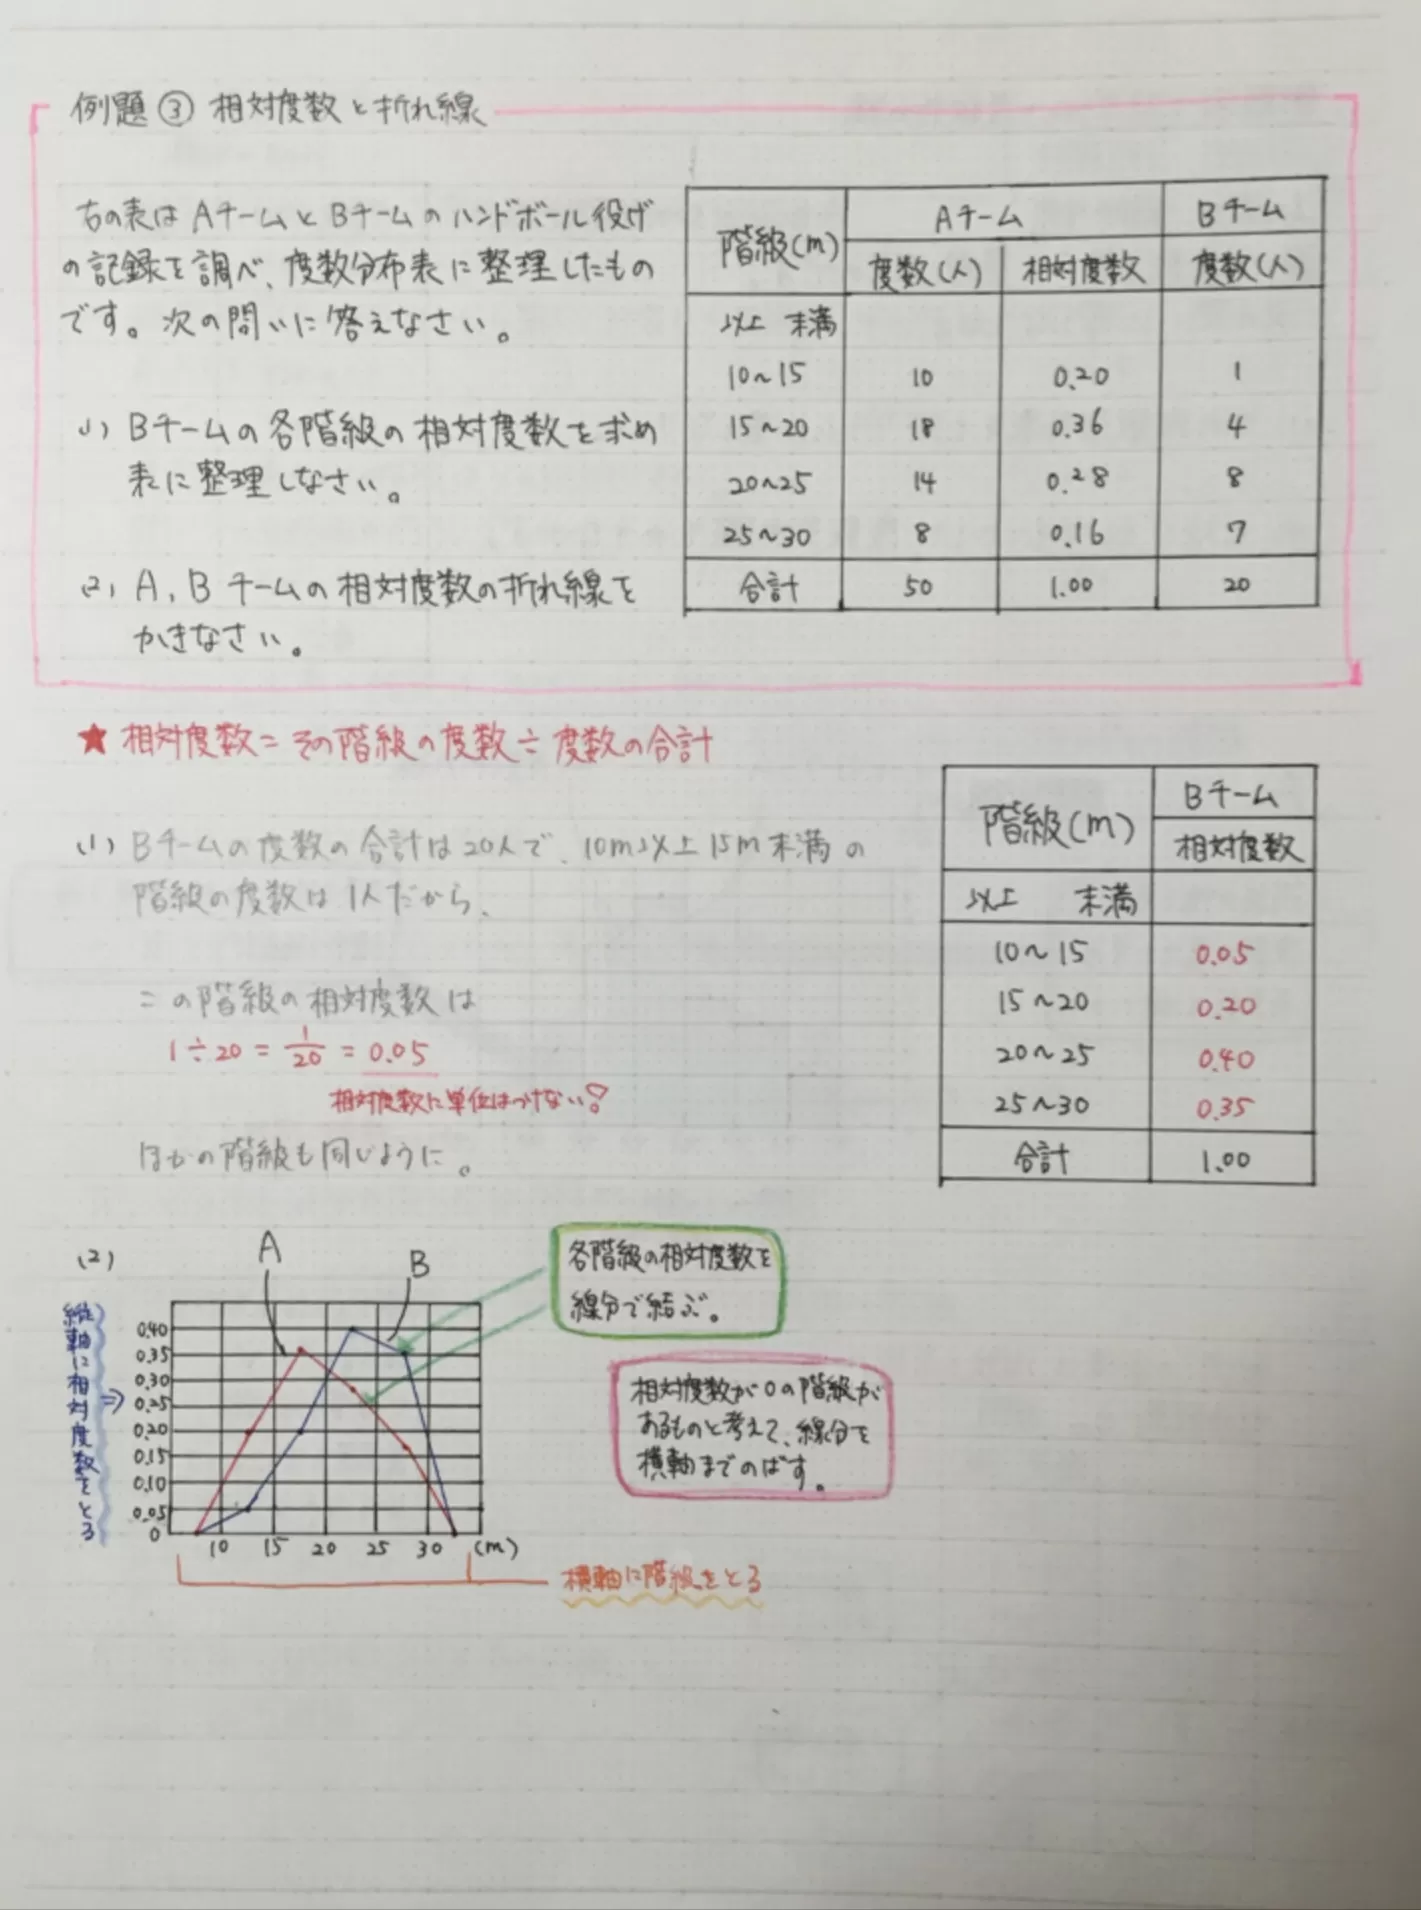 例題③ 相対度数と折れ線
右の表はAチームとBチームのハンドボール投げ
の記録を調べ、度数分布表に整理したもの
です。次の問いに答えなさい。
(1) Bチームの各階級の相対度数を求め
表に整理しなさい。
(2) A, Bチームの相対度数の折れ線を
かきなさい。
階級(m) Aチーム Bチーム
度数(人) 相対度数 度数(人)
以上 未満
10~15 10 0.20 1
15~20 18 0.36 4
20~25 14 0.28 8
25~30 8 0.16 7
合計 50 1.00 20
★ 相対度数=その階級の度数÷度数の合計
(1) Bチームの度数の合計は20人で、10m以上15m未満の
階級の度数は1人だから、
この階級の相対度数は
1÷20 = 1/20 = 0.05
相対度数に単位はつけない!
ほかの階級も同じように。
階級(m) Bチーム
相対度数
以上 未満
10~15 0.05
15~20 0.20
20~25 0.40
25~30 0.35
合計 1.00
(2)
A
B
縦軸に相対度数をとる
⇒
0.40
0.35
0.30
0.25
0.20
0.15
0.10
0.05
0
10 15 20 25 30 (m)
各階級の相対度数を
線分で結ぶ。
相対度数が0の階級が
あるものと考えて、線分を
横軸までのばす。
横軸に階級をとる